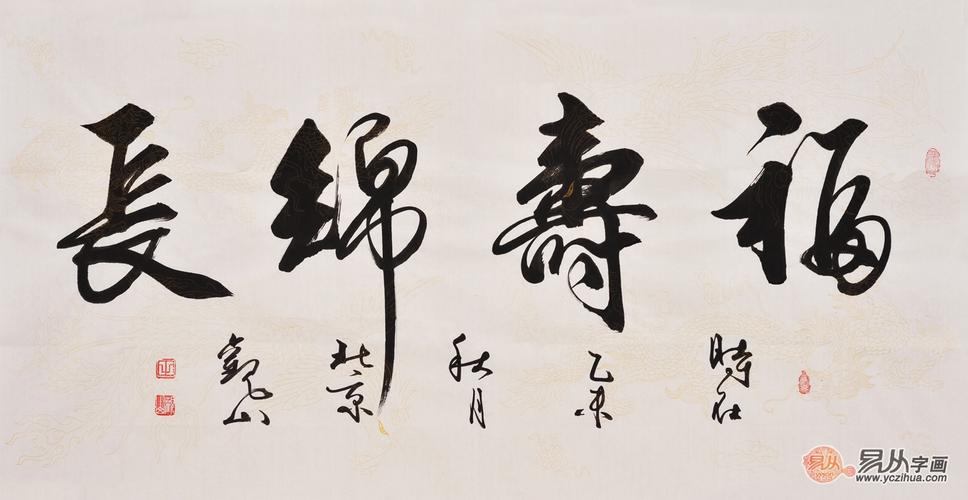 福壽綿長
時在
乙未
秋月
北京
觀山
易从
易从字画
www.yczihua.com